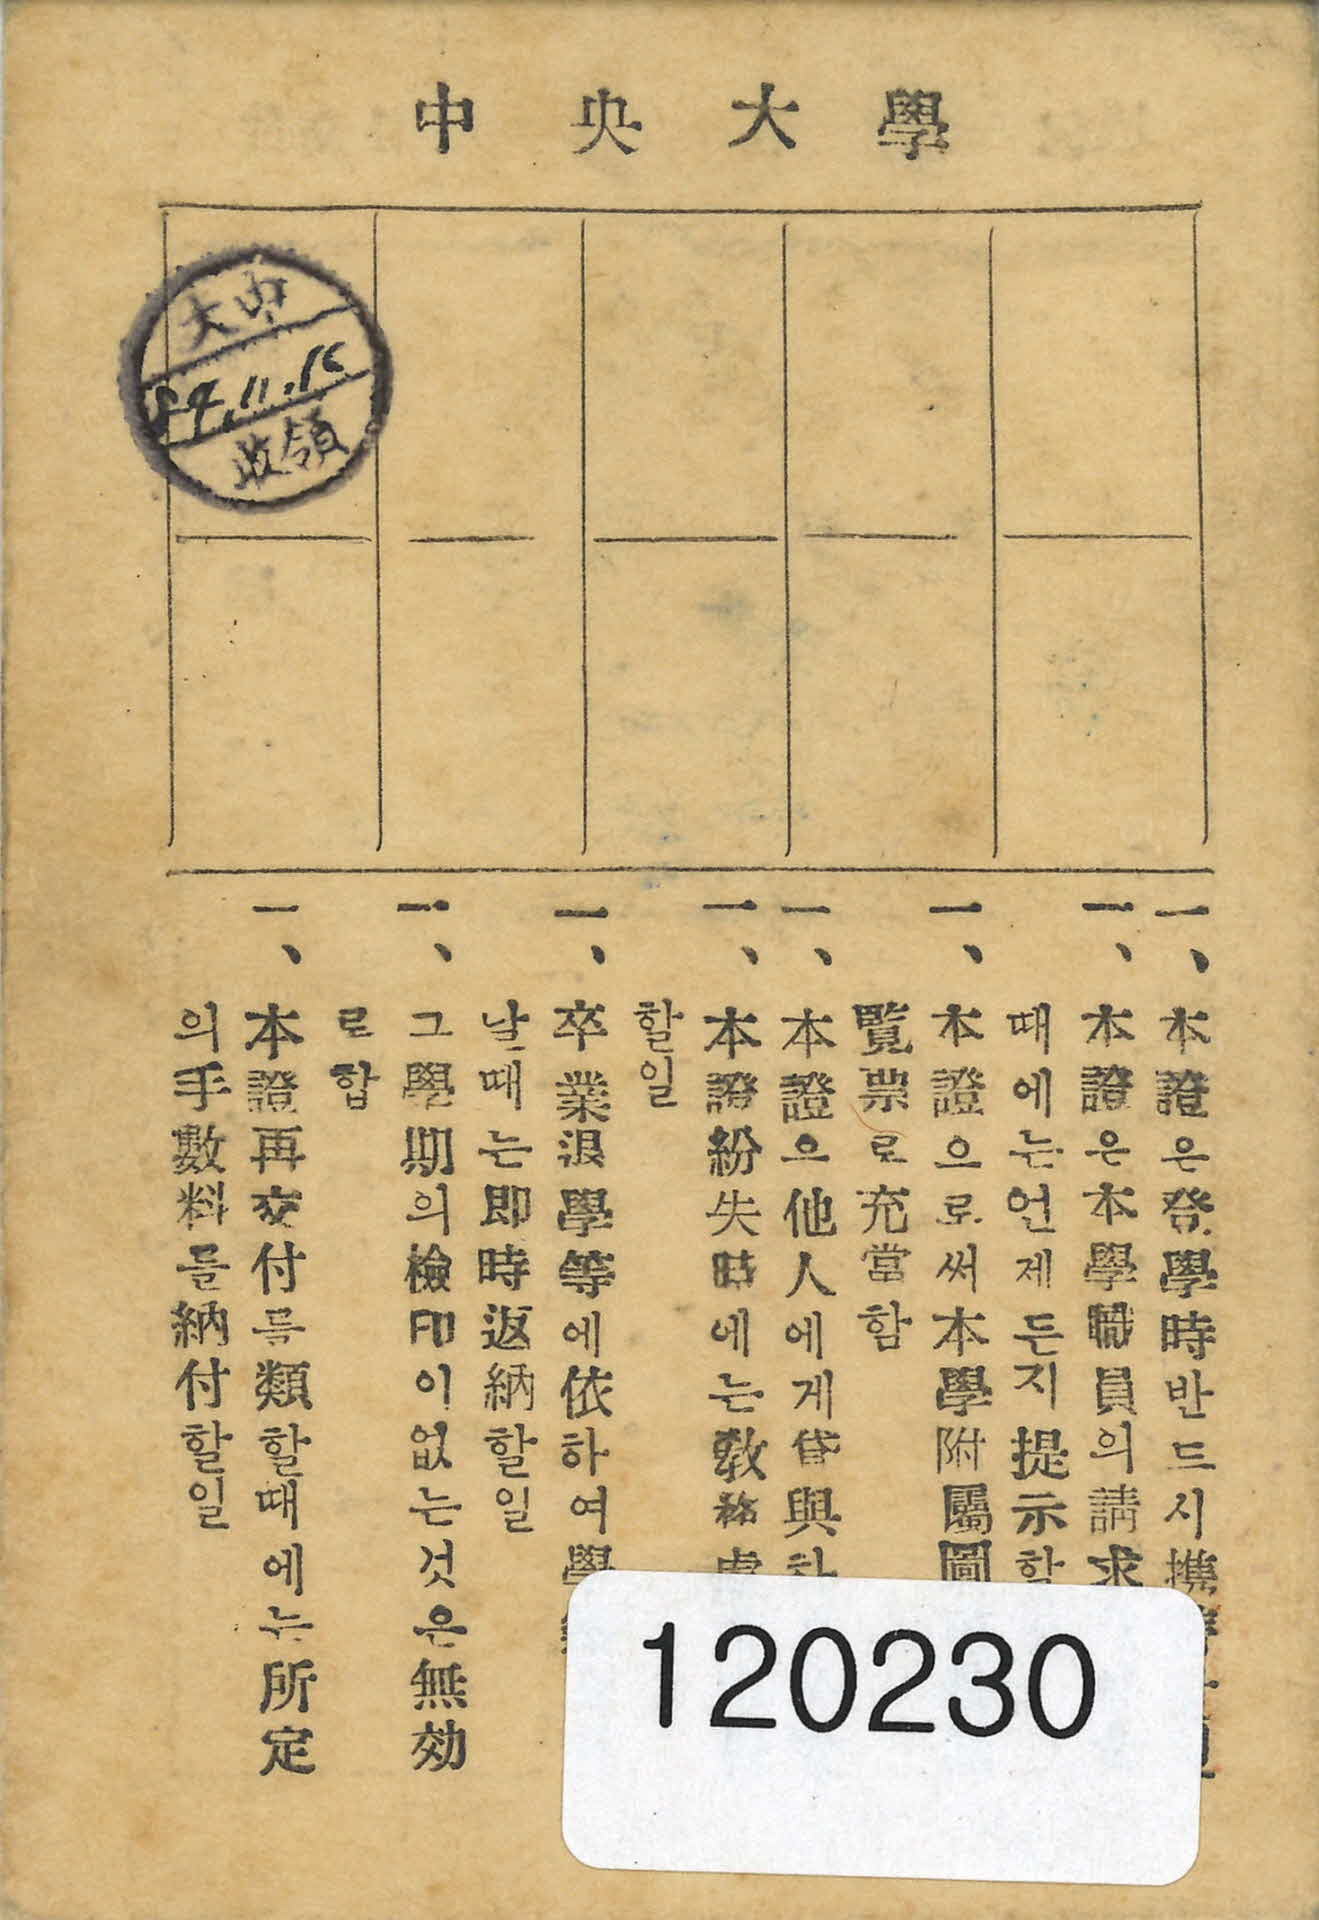 中央大學
大中
84.11.16
收領
一、本證은登學時반드시携
一、本證은本學職員의請求
때에는언제든지提示할
一、本證으로써本學附屬圖
覽票로充當함
一、本證으他人에게貸與하
一、本證紛失時에는敎務處
할일
一、卒業退學等에依하여學
날때는即時返納할일
一、그學期의檢印이없는것은無効
로함
一、本證再交付를類할때에는所定
의手數料를納付할일
120230